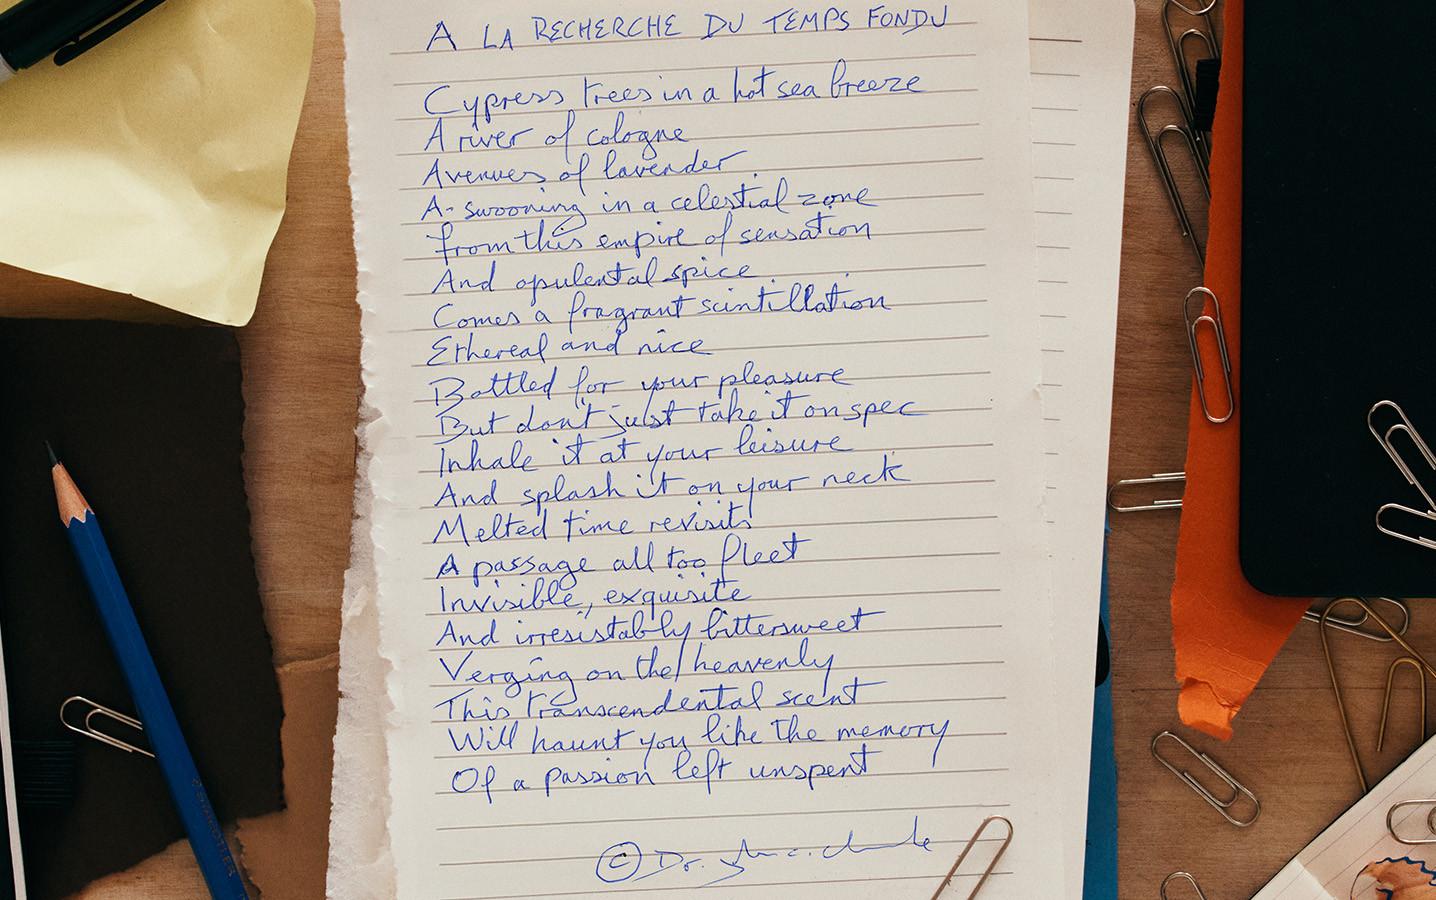 A LA RECHERCHE DU TEMPS FONDU
Cypress trees in a hot sea breeze
A river of cologne
Avenues of lavender
A-swooning in a celestial zone
From this empire of sensation
And opulental spice
Comes a fragrant scintillation
Ethereal and nice
Bottled for your pleasure
But don't just take it on spec
Inhale it at your leisure
And splash it on your neck
Melted time revisits
A passage all too fleet
Invisible, exquisite
And irresistably bittersweet
Verging on the heavenly
This transcendental scent
Will haunt you like the memory
Of a passion left unspent
© Dr. John C. Clarke
STAEDTLER